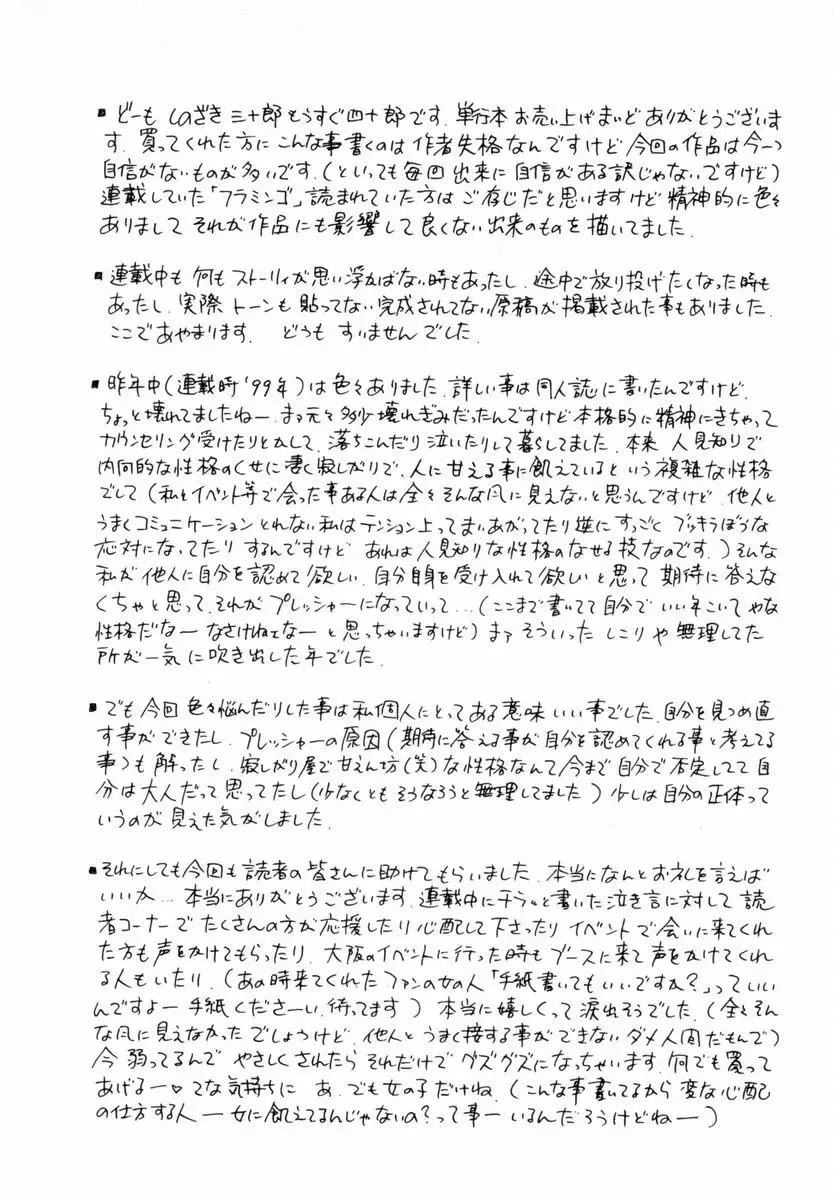 ▪どーも しのざき三十郎もうすぐ四十郎です．単行本お売い上げまいどありがとうございま
す．買ってくれた方にこんな事書くのは作者失格なんですけど今回の作品は今一つ
自信がないものが多いです．(といっても毎回出来に自信がある訳じゃないですけど)
連載していた「フラミンゴ」読まれていた方はご存じだと思いますけど精神的に色々
ありまして それが作品にも影響して良くない出来のものを描いてました．
▪連載中も何もストーリィが思い浮かばない時もあったし．途中で放り投げたくなった時も
あったし．実際トーンも貼ってない完成されてない原稿が掲載された事もありました．
ここであやまります． どうもすいませんでした．
▪昨年中(連載時'99年)は色々ありました．詳しい事は同人誌に書いたんですけど．
ちょっと壊れてましたねー．まァ元々多少壊れぎみだったんですけど本格的に精神にきちゃって
カウンセリング受けたりとかして．落ちこんだり泣いたりして暮らしてました．本来 人見知りで
内向的な性格のくせに凄く寂しがりで、人に甘える事に飢えているという複雑な性格
でして(私とイベント等で会った事ある人は全々そんな風に見えないと思うんですけど．他人と
うまくコミュニケーションとれない私はテンション上ってまいあがってたり逆にすっごくブッキラぼうな
応対になってたりするんですけど あれは人見知りな性格のなせる技なのです．)そんな
私が他人に自分を認めて欲しい．自分自身を受け入れて欲しいと思って期待に答えな
くちゃと思って．それがプレッシャーになっていって…(ここまで書いてて自分でいい年こいてやな
性格だなー なさけねェなーと思っちゃいますけど)まァそういったしこりや無理してた
所が一気に吹き出した年でした．
▪でも今回色々悩んだりした事は私個人にとってある意味いい事でした．自分を見つめ直
す事ができたし．プレッシャーの原因(期待に答える事が自分を認めてくれる事と考えてる
事)も解ったし．寂しがり屋で甘えん坊(笑)な性格なんて今まで自分で不定してて自
分は大人だって思ってたし(少なくともそうなろうと無理してました)少しは自分の正体って
いうのが見えた気がしました．
▪それにしても今回も読者の皆さんに助けてもらいました．本当になんとお礼を言えば
いいか…本当にありがとうございます．連載中にチラッと書いた泣き言に対して読
者コーナーでたくさんの方が応援したり心配して下さったりイベントで会いに来てくれ
た方も声をかけてもらったり．大阪のイベントに行った時もブースに来て声をかけてくれ
る人もいたり．(あの時来てくれたファンの女の人「手紙書いてもいいですか?」っていい
んですよー手紙くださーい．待ってます)本当に嬉しくって涙出そうでした．(全々そん
な風に見えなかったでしょうけど．他人とうまく接する事ができないダメ人間だもんで)
今弱ってるんで やさしくされたらそれだけでグズグズになっちゃいます．何でも買って
あげるー♡てな気持ちに あ．でも女の子だけね．(こんな事書いてるから変な心配
の仕方する人ー女に飢えてるんじゃないの?って事ーいるんだろうけどねー)